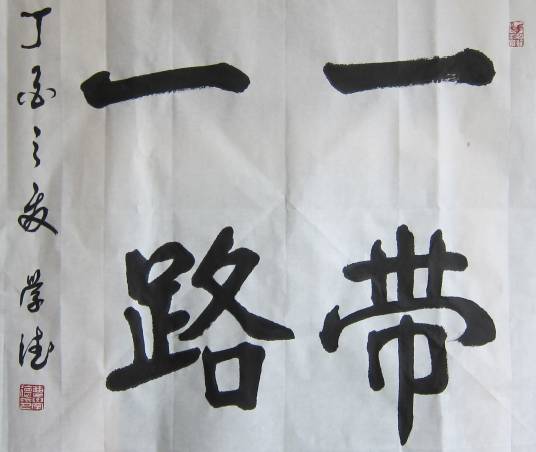 一带
一路
丁酉之夏 学德